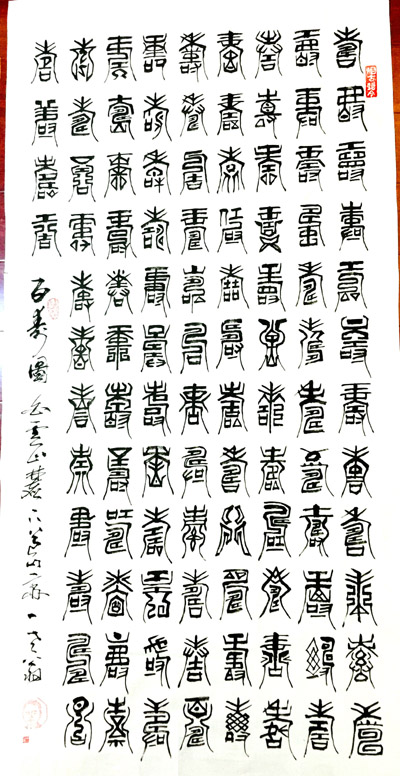 壽壽壽壽壽壽壽壽壽壽壽壽
壽壽壽壽壽壽壽壽壽壽壽壽
壽壽壽壽壽壽壽壽壽壽壽壽
壽壽壽壽壽壽壽壽壽壽壽壽
壽壽壽壽壽壽壽壽壽壽壽壽
壽壽壽壽壽壽壽壽壽壽壽壽
壽壽壽壽壽壽壽壽壽壽壽壽
壽壽壽壽壽壽壽壽壽壽壽壽
壽壽壽壽
百壽圖 白雲山麓 一老翁